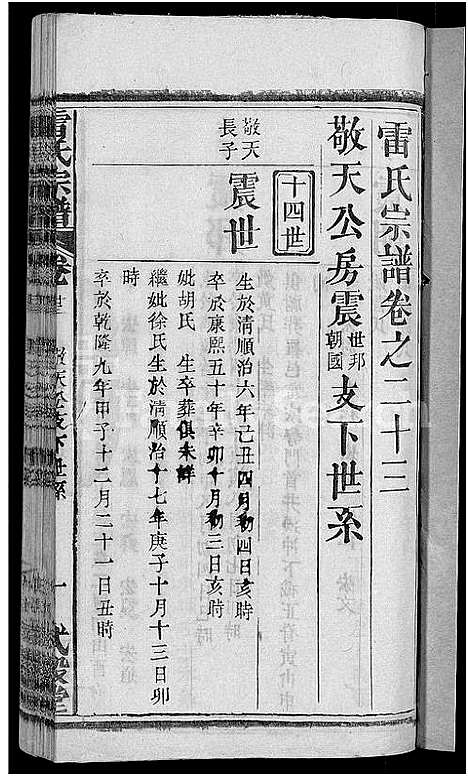 雷氏宗譜卷之二十三
敬天公房震世邦朝國支下世系
十四世
敬天長子
震世
生於清順治六年己丑四月初四日亥時
卒於康熙五十年辛卯十月初三日亥時
妣胡氏 生卒葬俱未詳
繼妣徐氏生於清順治十七年庚子十月十三日卯
時
卒於乾隆九年甲子十二月二十一日丑時
雷氏宗譜 卷廿三 敬天公支下世系 一